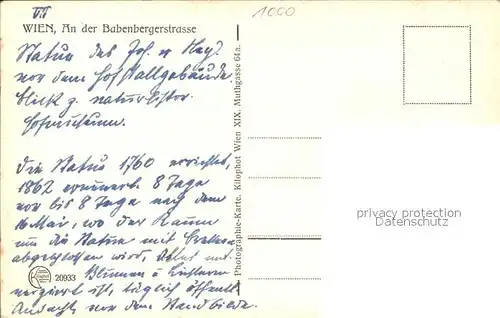 VI
1000
WIEN, An der Babenbergerstrasse
Statue des Joh. v. Nep.
vor dem Hofstallgebäude
blick g. naturhistor.
Hofmuseum.
Die Statue 1760 errichtet,
1862 erneuert. 8 Tage
vor bis 8 Tage nach dem
16 Mai, wo der Raum
um die Statue mit
abgeschlossen wird, Statue mit
Blumen u. Lichtern
verziert ist, täglich öffentl.
Andacht vor dem Standbilde.
20933
Photographie-Karte. Kilophot Wien XIX, Muthgasse 64a.
privacy protection
watermark